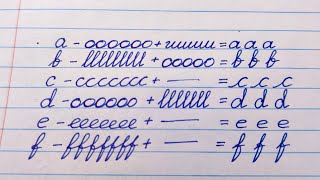 a - oooooo + ıııııııı = a a a
b - lllllllll + ooooo = b b b
c - ccccccc + — = c c c
d - oooooo + lllllll = d d d
e - eeeeeee + — = e e e
f - fffffff + — = f f f